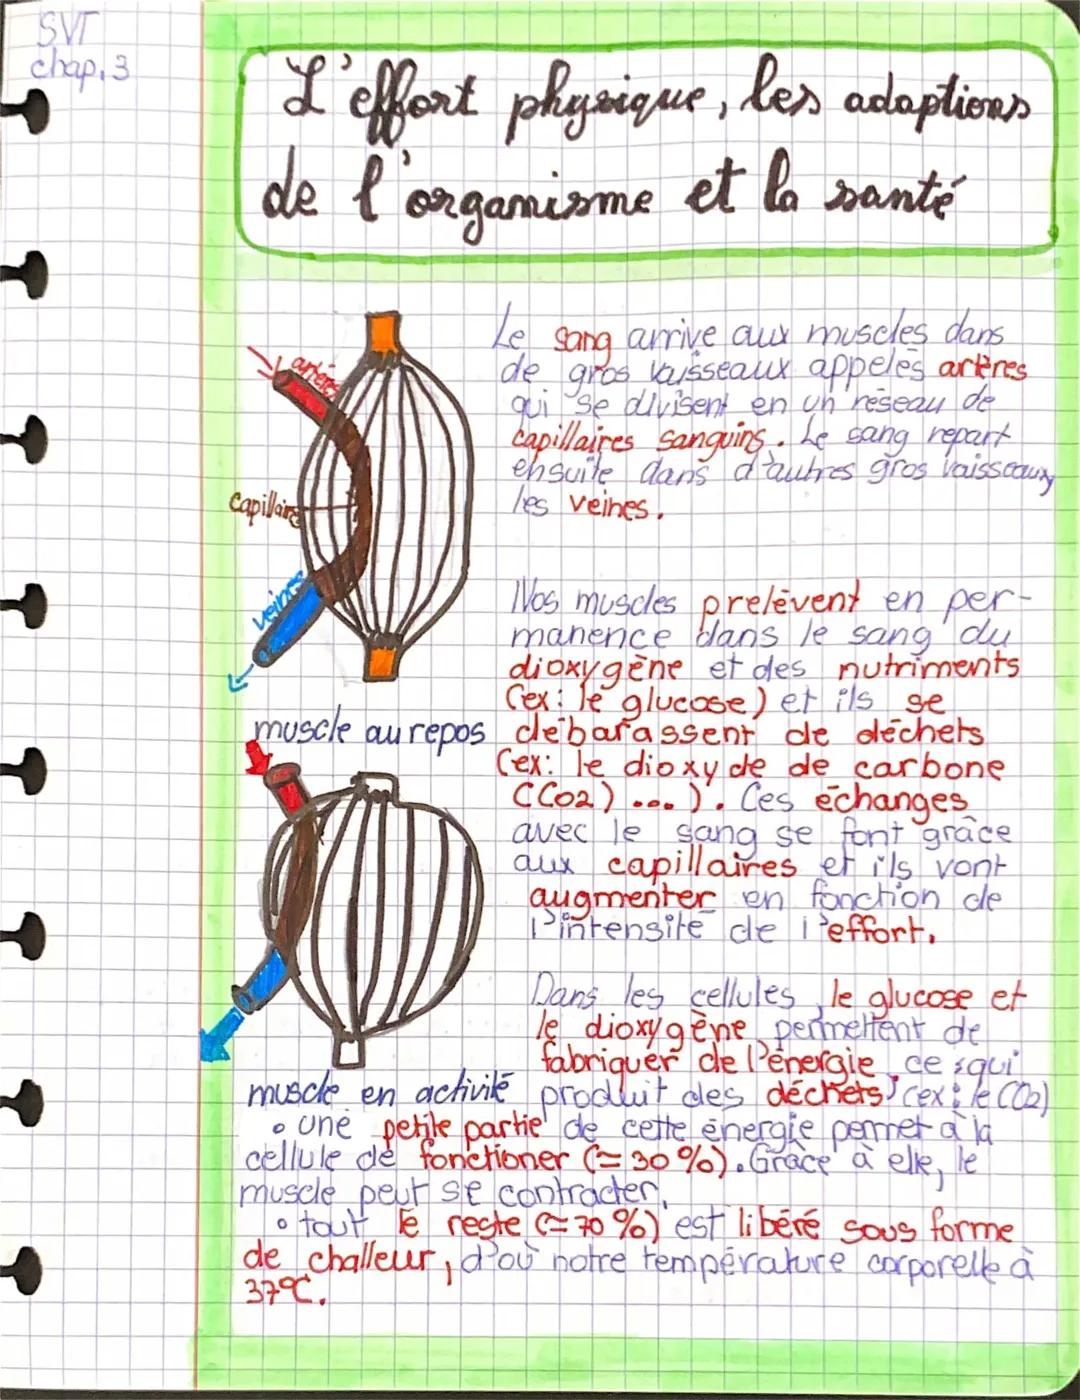 SVT
chap.3
L'effort physique, les adaptions
de l'organisme et la santé
Le sang arrive aux muscles dans
de gros vaisseaux appelés artères
qui se divisent en un réseau de
capillaires sanguins. Le sang repart
ensuite dans d'autres gros vaisseaux
les veines.
artères
capillaire
veines
muscle au repos
Nos muscles prelèvent en per-
manence dans le sang du
dioxygène et des nutriments
(ex: le glucose) et ils se
débarassent de déchets
(ex: le dioxyde de carbone
(CO2) ...). Ces échanges
avec le sang se font grâce
aux capillaires et ils vont
augmenter en fonction de
l'intensité de l'effort.
muscle en activité
Dans les cellules, le glucose et
le dioxygène permettent de
fabriquer de l'énergie, ce qui
produit des déchets (ex: le CO2)
• une petite partie de cette énergie permet à la
cellule de fonctioner (≃ 30 %). Grâce à elle, le
muscle peut se contracter.
• tout le reste (≃ 70 %) est libéré sous forme
de challeur, d'où notre température corporelle à
37°C.